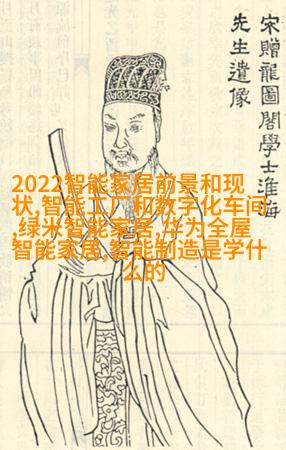 宋贈龍圖閣學士淮海
先生遺像
2022智能家居前景和现
状,智能工厂和数字化车间
,绿米智能家居,华为全屋
智能家居,智能制造是学什
么的